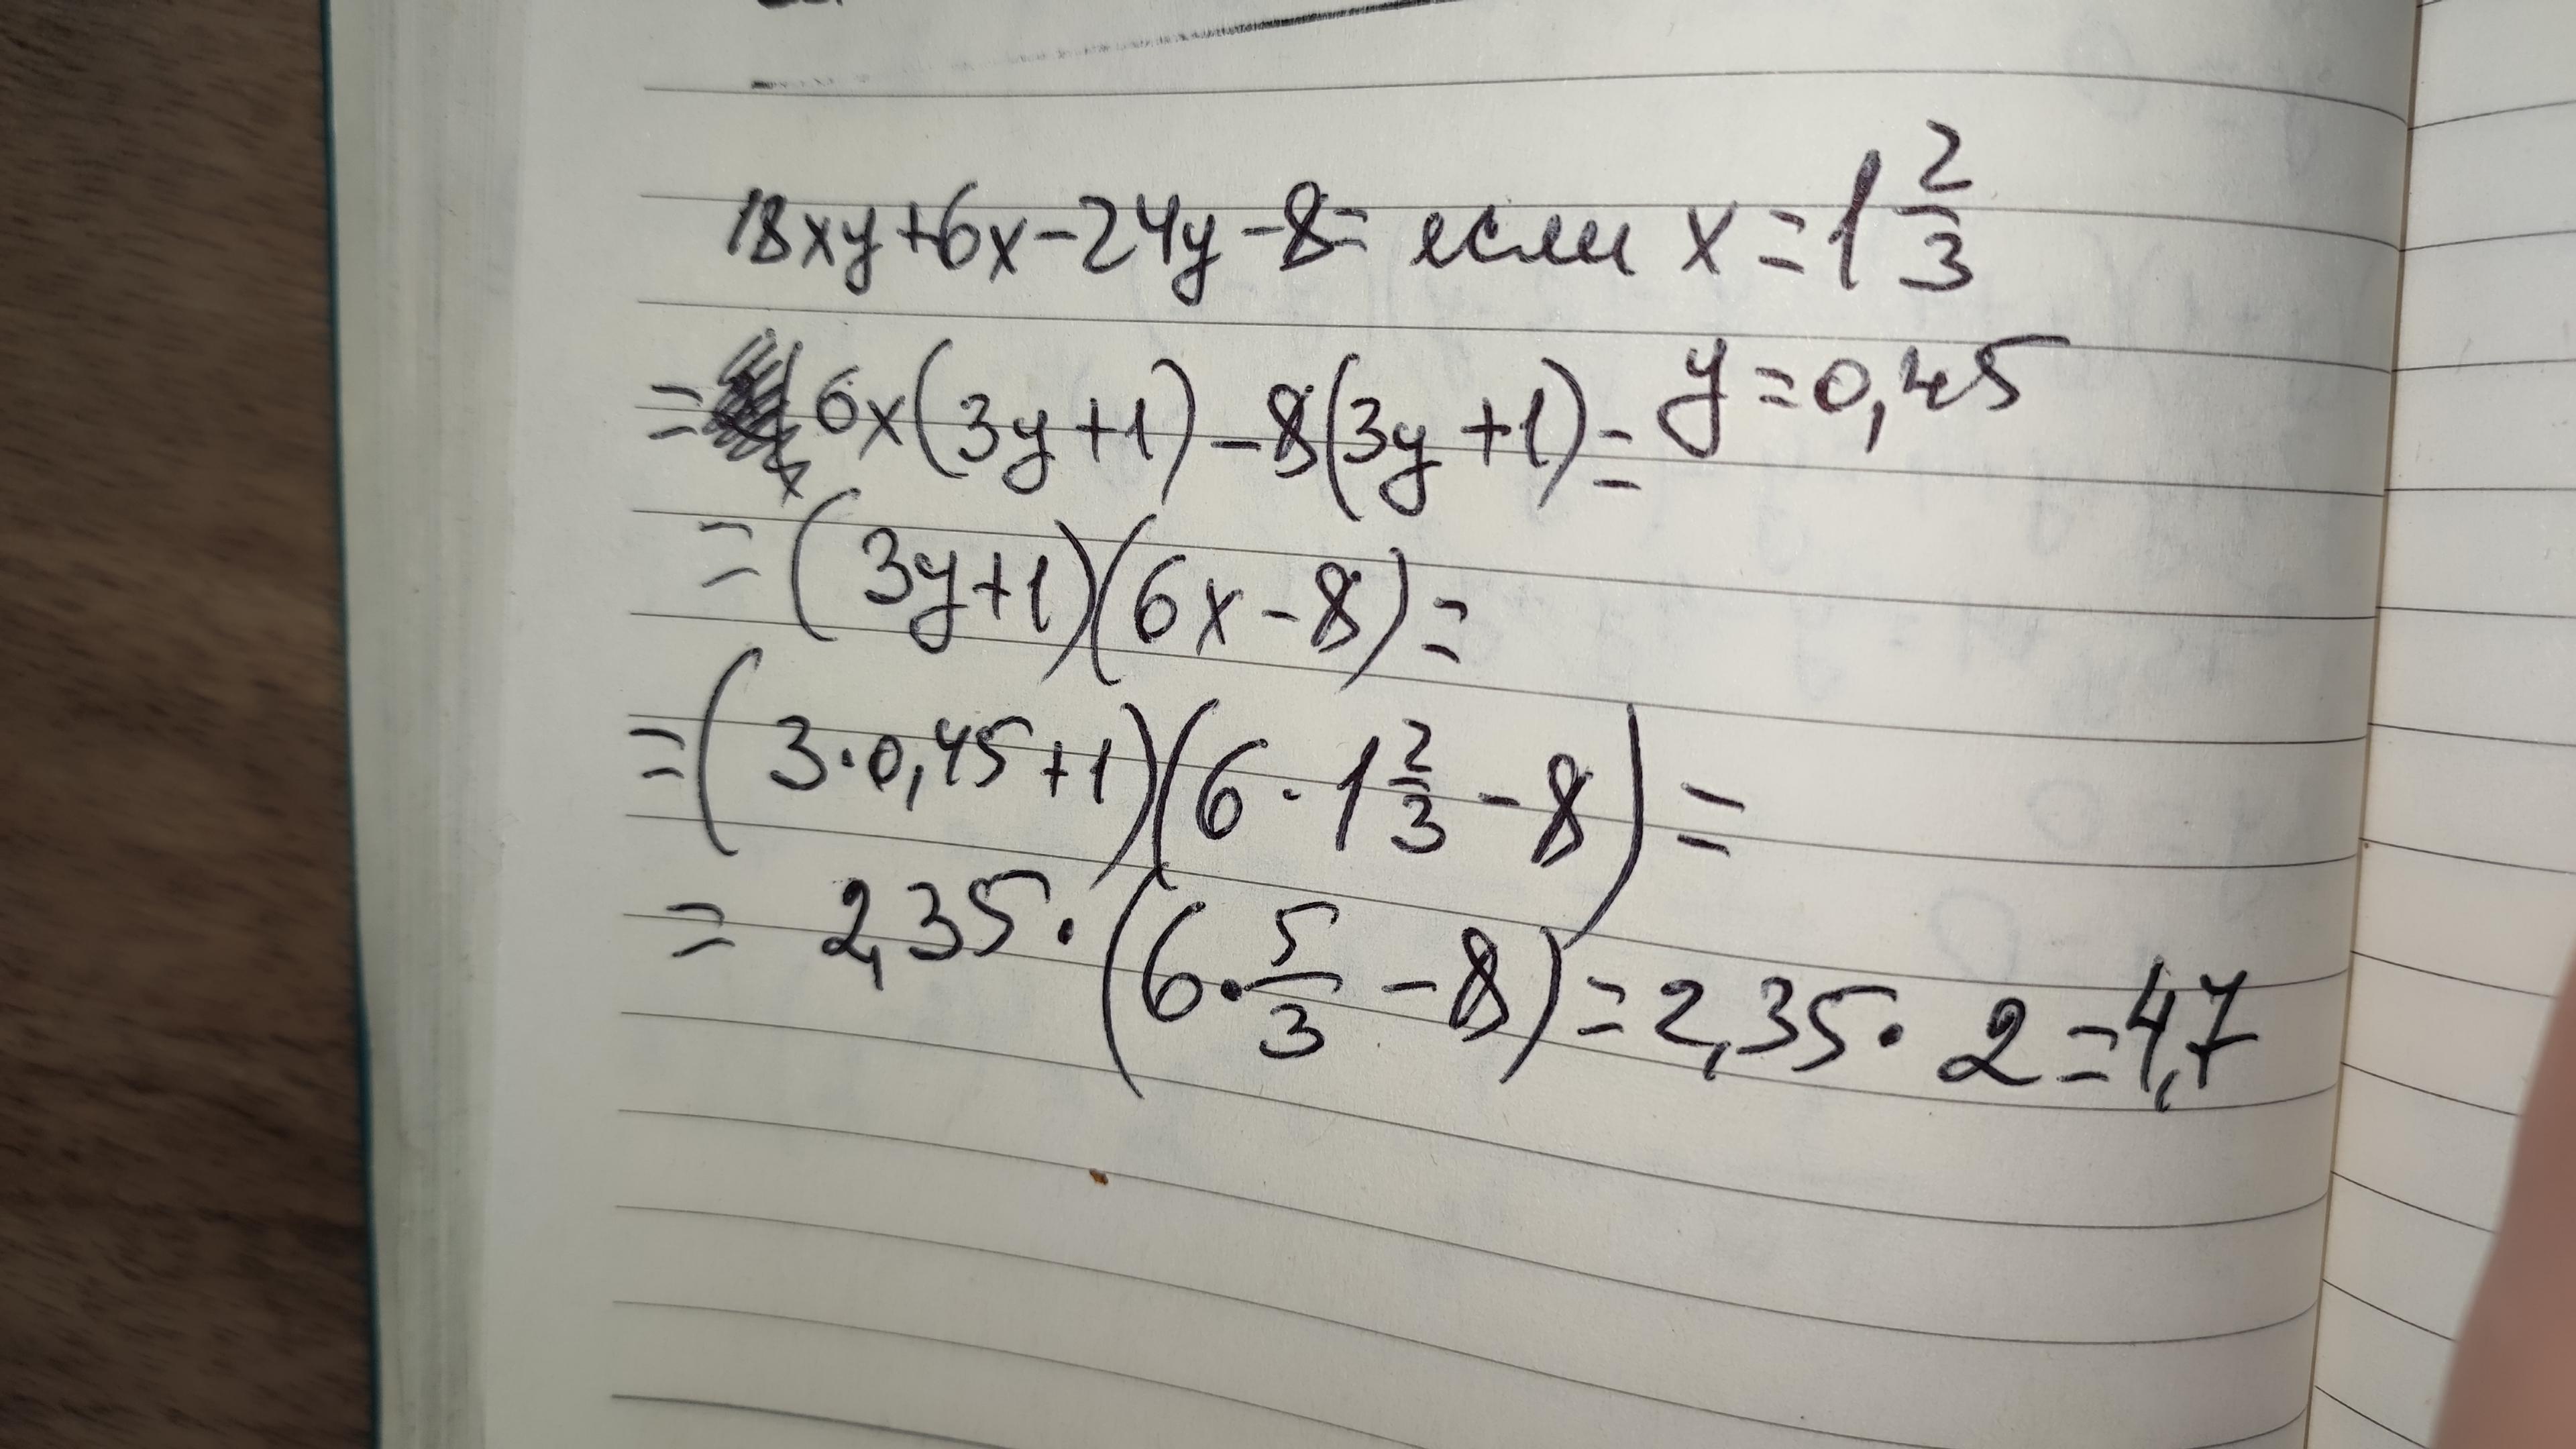 18xy+6x-24y-8= если x=1 2/3
= 6x(3y+1)-8(3y+1)= y=0,45
=(3y+1)(6x-8)=
=(3·0,45+1)(6·1 2/3-8)=
= 2,35·(6·5/3-8)=2,35·2=4,7